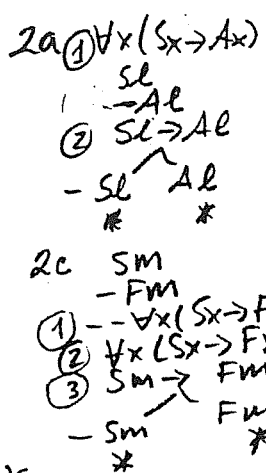 2a ① ∀x(Sx→Ax)
Sl
–Al
② Sl→Al
– Sl Al
* *
2c Sm
– Fm
① – – ∀x(Sx→F
② ∀x(Sx→Fx
③ Sm→ Fm
– Sm Fm
* *